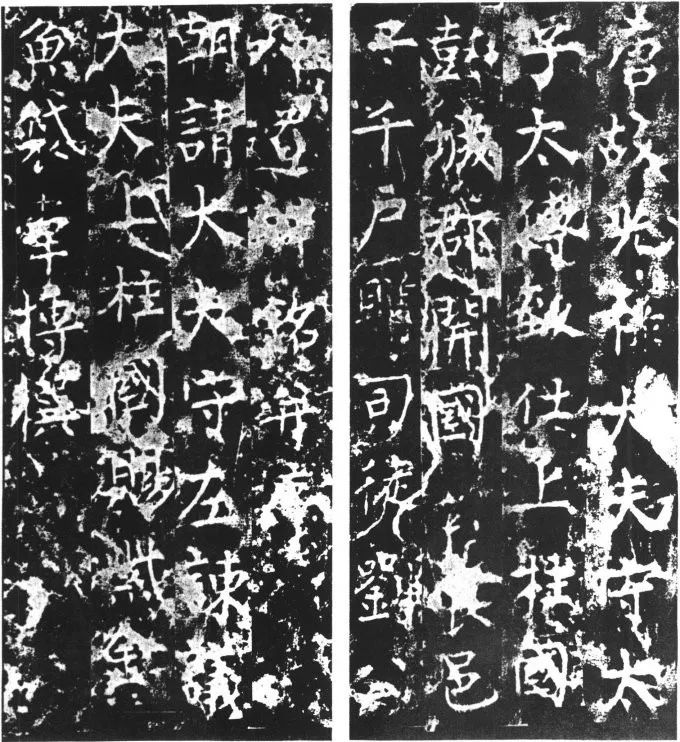 唐故光祿大夫守太
子太傅致仕上柱國
彭城郡開國公食邑
二千戶贈司徒劉公
神道碑銘并序
朝請大夫守左諫議
大夫上柱國賜紫金
魚袋韋博撰